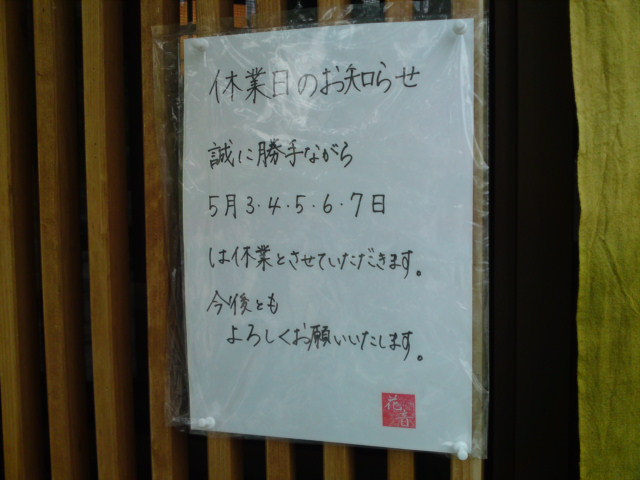 休業日のお知らせ
誠に勝手ながら
5月3・4・5・6・7日
は休業とさせていただきます。
今後とも
よろしくお願いいたします。
花音